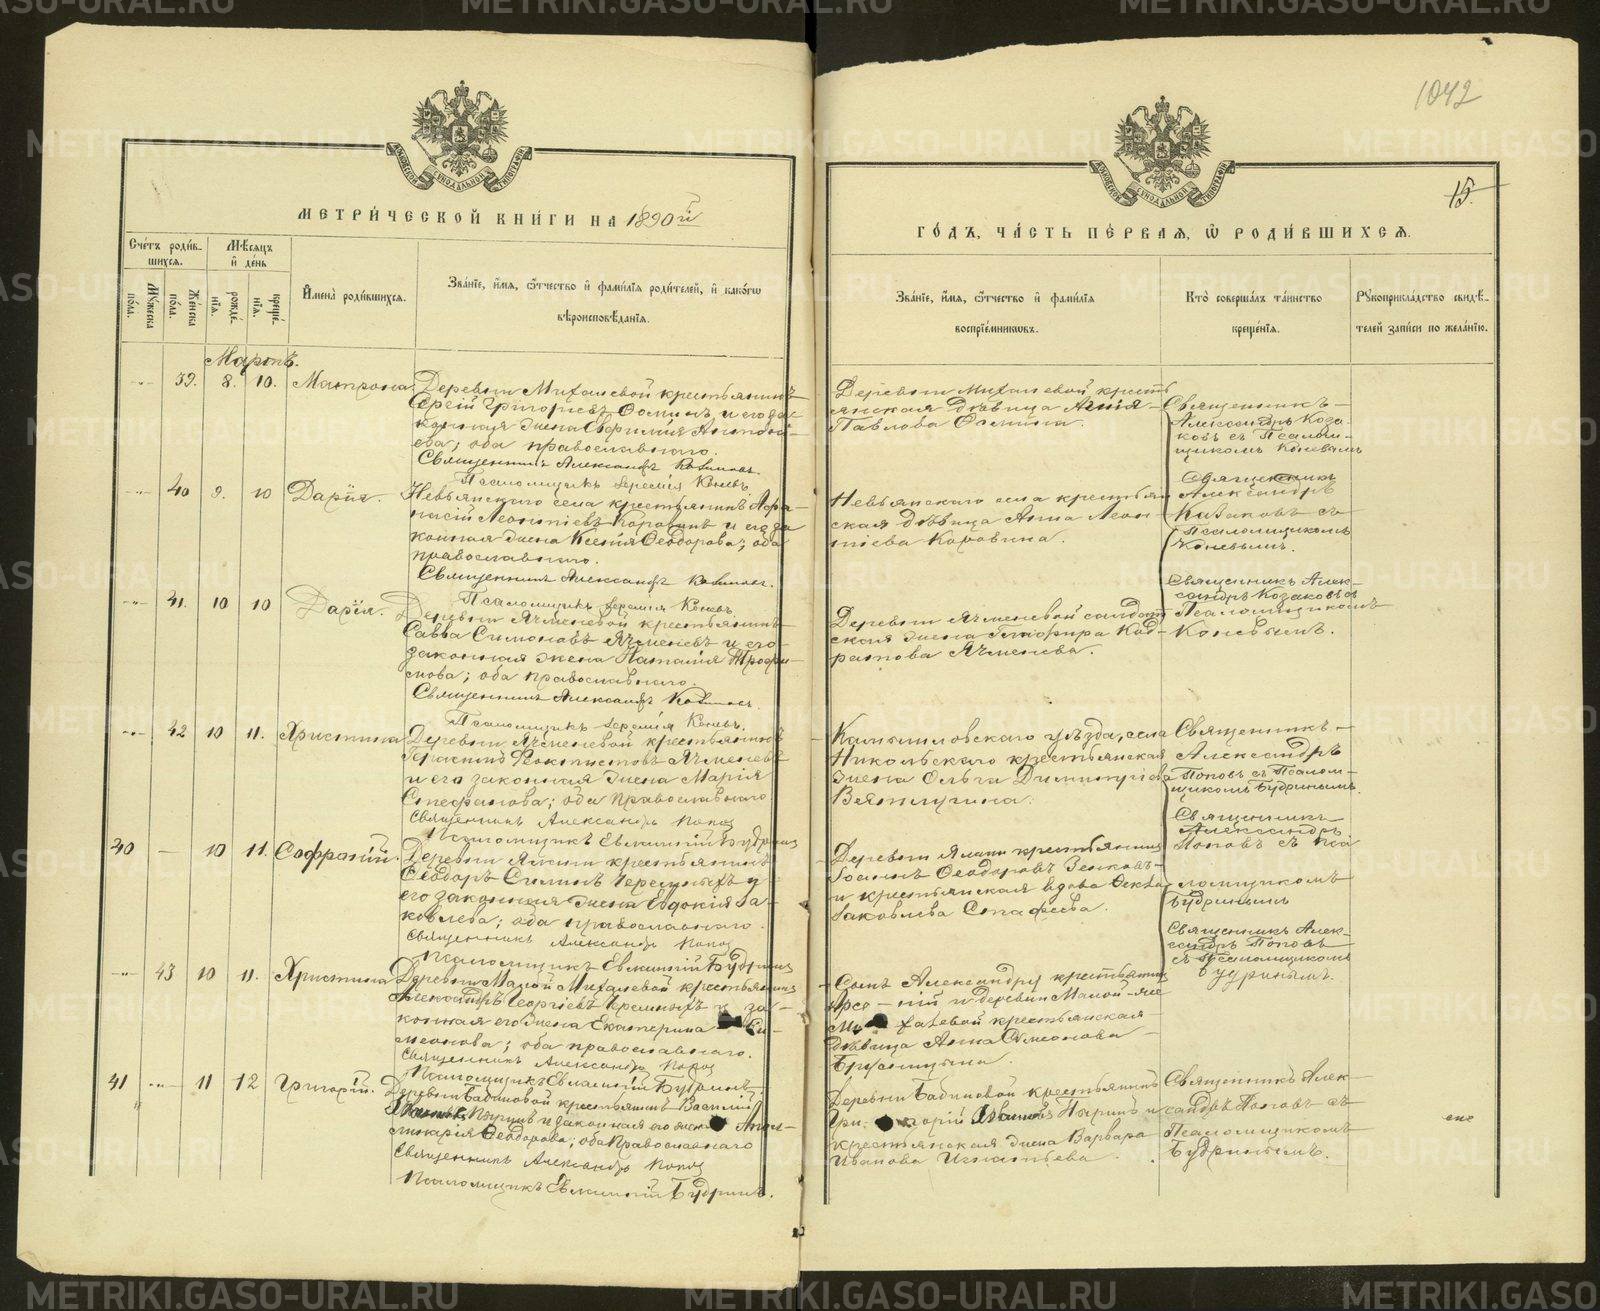 1042
15.
МЕТРИ́ЧЕСКОЙ КНИ́ГИ НА 1890 й
ГО́ДЪ, ЧА́СТЬ ПЕ́РВАѦ, Ѽ РОДИ́ВШИХСѦ.
Сче́тъ роди́вшихсѧ.
Мѹжеска по́ла.
Же́нска по́ла.
Мѣ́сѧцъ и҆ де́нь
рожде́нїѧ.
креще́нїѧ.
И҆мена̀ роди́вшихсѧ.
Зва́нїе, и҆́мѧ, ѻ҆́тчество и҆ фами́лїѧ роди́телей, и҆ како́гѡ
вѣроисповѣ́данїѧ.
Зва́нїе, и҆́мѧ, ѻ҆́тчество и҆ фами́лїѧ
воспрїе́мниковъ.
Кто̀ соверша́лъ та́инство
креще́нїѧ.
Рꙋкоприкла́дство свидѣ́-
телей за́писи по жела́нїю.
Мартъ.
39. 8. 10. Матрона.
Деревни Михалевой крестьянинъ
Сергій Григорьевъ Ѳоминъ и его за-
конная жена Евфимія Антоні-
ева; оба православнаго.
Священникъ Александръ Казаковъ.
Псаломщикъ Іеремія Коневъ.
Деревни Михалевой кресть
янская дѣвица Агнія
Павлова Ѳомина.
Священникъ
Александръ Каза-
ковъ съ Псалом-
щикомъ Коневымъ
40 9. 10 Дарія.
Невьянскаго села крестьянинъ Аѳа-
насій Леонтіевъ Коровинъ и его за
конная жена Ксенія Ѳеодорова; оба
православнаго.
Священникъ Александръ Казаковъ.
Псаломщикъ Іеремія Коневъ
Невьянскаго села крестьян
ская дѣвица Анна Леон
тіева Коровина.
Священникъ
Александръ
Казаковъ съ
Псаломщикомъ
Коневымъ.
41. 10 10 Дарія.
Деревни Ячменевой крестьянинъ
Савва Симоновъ Ячменевъ и его
законная жена Наталія Трофи-
мова; оба православнаго.
Священникъ Александръ Казаковъ.
Псаломщикъ Іеремія Коневъ.
Деревни Ячменевой солдат
ская жена Глафира Конд-
ратова Ячменева.
Священникъ Алек-
сандръ Козаковъ съ
Псаломщикомъ
Коневымъ.
42 10 11. Христина
Деревни Ячменевой крестьянинъ
Герасимъ Ѳеоктистовъ Ячменевъ
и его законная жена Марія
Стефанова; оба Православнаго
Священникъ Александръ Попов
Псаломщикъ Евлампій Будрин
Камышловскаго уѣзда, села
Никольскаго крестьянская
жена Ольга Димитріева
Ветлугина.
Священникъ
Александръ
Поповъ съ Псалом-
щикомъ Будринымъ.
40 — 10 11. Софроній.
Деревни Ялани крестьянинъ
Ѳеодоръ Силинъ Черемныхъ и
его законная жена Евдокія Іа-
ковлева; оба православнаго.
Священникъ Александръ Попов
Псаломщикъ Евлампій Будринъ
Деревни Ялани крестьянинъ
Іоаннъ Ѳеодоровъ Зенковъ
и крестьянская вдова Ѳекла
Іаковлева Стафеева.
Священникъ
Александръ
Поповъ съ Пса
ломщикомъ
Будринымъ
43 10 11. Христина
Деревни Малой Михалевой крестьянинъ
Александръ Георгіевъ Черемныхъ и за-
конная его жена Екатерина Си-
меонова; оба православнаго.
Священникъ Александръ Попов
Псаломщикъ Евлампій Будринъ.
Сынъ Александру крестьянинъ
Арсе-ній и деревни Малой
Ми халевой крестьянская
дѣвица Анна Симеонова
Брусницына.
Священникъ Алек-
сандръ Поповъ
съ Псаломщикомъ
Будринымъ.
41 11 12 Григорій.
Деревни Бабиновой крестьянинъ Василій
Ивановъ Пыринъ и законная его жена Апол-
линарія Ѳеодорова; оба Православнаго
Священникъ Александръ Попов
Псаломщикъ Евлампій Будринъ.
Деревни Бабиновой крестьянинъ
Гри- горій Ивановъ Пыринъ и
крестьянская жена Варвара
Иванова Игнатьева.
Священникъ Алек-
сандръ Поповъ съ
Псаломщикомъ
Будринымъ.
METRIKI.GASO-URAL.RU